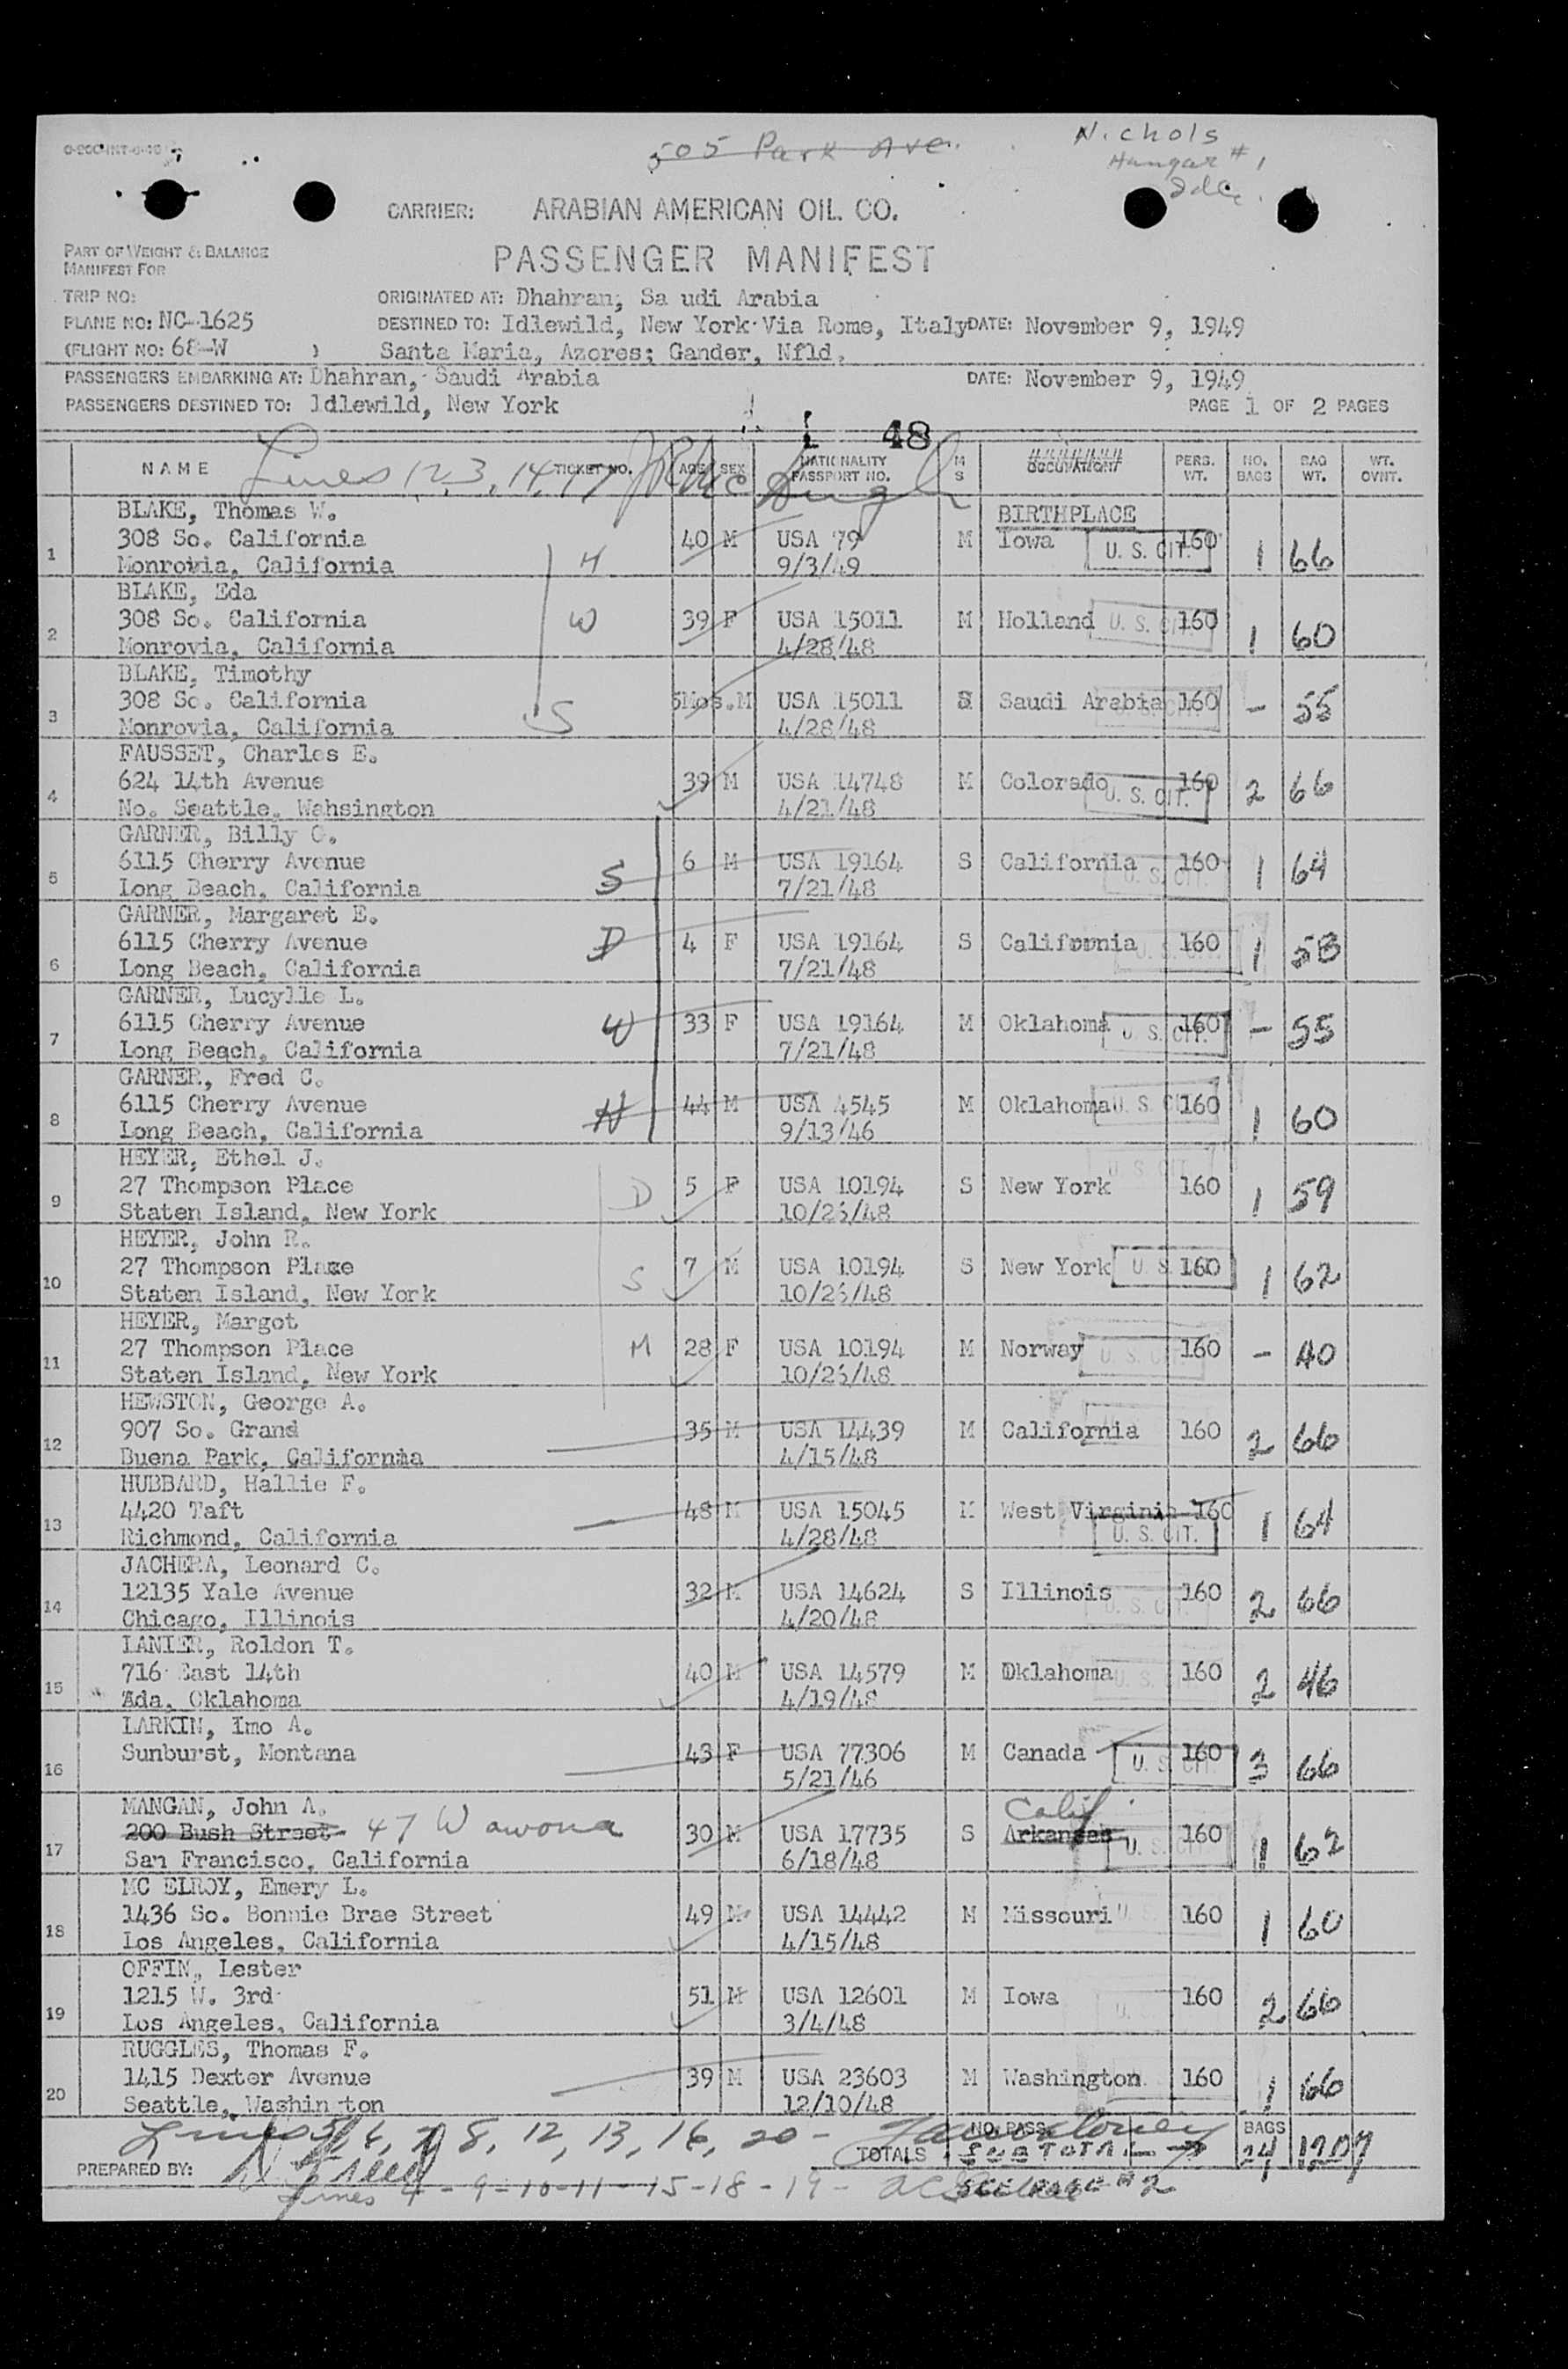 505 Park Ave.
Nichols
Hangar # 1
CARRIER: ARABIAN AMERICAN OIL CO.
PASSENGER MANIFEST
PART OF WEIGHT & BALANCE
MANIFEST FOR
TRIP NO:
ORIGINATED AT: Dhahran, Sa udi Arabia
PLANE NO: NC-1625
DESTINED TO: Idlewild, New York Via Rome, Italy DATE: November 9, 1949
(FLIGHT NO: 68-W )
Santa Maria, Azores; Gander, Nfld.
PASSENGERS EMBARKING AT: Dhahran, Saudi Arabia DATE: November 9, 1949
PASSENGERS DESTINED TO: Idlewild, New York PAGE 1 OF 2 PAGES
48
NAME TICKET NO. AGE SEX NATIONALITY PASSPORT NO. M S OCCUPATION PERS. WT. NO. BAGS BAG WT. WT. OVNT.
Lines 1, 2, 3, 14, 17
BLAKE, Thomas W. BIRTHPLACE
1 308 So. California H 40 M USA 79 M Iowa U. S. CIT. 160 1 66
Monrovia, California 9/3/49
BLAKE, Eda
2 308 So. California W 39 F USA 15011 M Holland U. S. CIT. 160 1 60
Monrovia, California 4/28/48
BLAKE, Timothy
3 308 So. California S 5Mos. M USA 15011 S Saudi Arabia U. S. CIT. 160 - 55
Monrovia, California 4/28/48
FAUSSET, Charles E.
4 624 14th Avenue 39 M USA 14748 M Colorado U. S. CIT. 160 2 66
No. Seattle, Wahsington 4/21/48
GARNER, Billy C.
5 6115 Cherry Avenue S 6 M USA 19164 S California U. S. CIT. 160 1 64
Long Beach, California 7/21/48
GARNER, Margaret E.
6 6115 Cherry Avenue D 4 F USA 19164 S California U. S. CIT. 160 1 58
Long Beach, California 7/21/48
GARNER, Lucylle L.
7 6115 Cherry Avenue W 33 F USA 19164 M Oklahoma U. S. CIT. 160 - 55
Long Beach, California 7/21/48
GARNER, Fred C.
8 6115 Cherry Avenue H 44 M USA 4545 M Oklahoma U. S. CIT. 160 1 60
Long Beach, California 9/13/46
HEYER, Ethel J.
9 27 Thompson Place D 5 F USA 10194 S New York U. S. CIT. 160 1 59
Staten Island, New York 10/26/48
HEYER, John R.
10 27 Thompson Place S 7 M USA 10194 S New York U. S. 160 1 62
Staten Island, New York 10/26/48
HEYER, Margot
11 27 Thompson Place M 28 F USA 10194 M Norway U. S. CIT. 160 - 40
Staten Island, New York 10/26/48
HEWSTON, George A.
12 907 So. Grand 35 M USA 14439 M California 160 2 66
Buena Park, California 4/15/48
HUBBARD, Hallie F.
13 4420 Taft 48 M USA 15045 M West Virginia 160 U. S. CIT. 1 64
Richmond, California 4/28/48
JACHERA, Leonard C.
14 12135 Yale Avenue 32 M USA 14624 S Illinois U. S. CIT. 160 2 66
Chicago, Illinois 4/20/48
LANIER, Roldon T.
15 716 East 14th 40 M USA 14579 M Oklahoma U. S. 160 2 46
Ada, Oklahoma 4/19/48
LARKIN, Imo A.
16 Sunburst, Montana 43 F USA 77306 M Canada U. S. CIT. 160 3 66
5/21/46
MANGAN, John A. Calif.
17 200 Bush Street 47 Wawona 30 M USA 17735 S Arkansas U. S. CIT. 160 1 62
San Francisco, California 6/18/48
MC ELROY, Emery L.
18 1436 So. Bonnie Brae Street 49 M USA 14442 M Missouri U. S. 160 1 60
Los Angeles, California 4/15/48
OFFIN, Lester
19 1215 W. 3rd 51 M USA 12601 M Iowa U. 160 2 66
Los Angeles, California 3/4/48
RUGGLES, Thomas F.
20 1415 Dexter Avenue 39 M USA 23603 M Washington 160 1 66
Seattle, Washington 12/10/48
Lines 5, 6, 7, 8, 12, 13, 16, 20 -
NO. PASS. BAGS
TOTALS SUB TOTAL 24 1207
PREPARED BY:
Lines 4 - 9 - 10 - 11 - 15 - 18 - 19 - SEE PAGE # 2